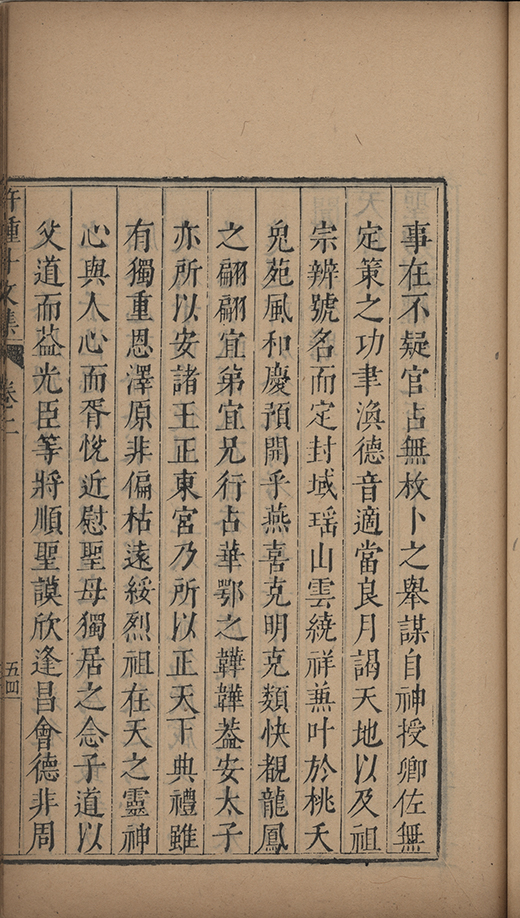 事在不疑官占無枚卜之舉謀自神授卿佐無
定策之功聿渙德音適當良月謁天地以及祖
宗辨號名而定封域瑶山雲繞祥兼叶於桃夭
兔苑風和慶預開乎燕喜克明克類快覩龍鳳
之翩翩宜第宜兄行占華鄂之韡韡葢安太子
亦所以安諸王正東宮乃所以正天下典禮雖
有獨重恩澤原非偏枯遠綏烈祖在天之靈神
心與人心而胥悅近慰聖母獨居之念子道以
父道而益光臣等將順聖謨欣逢昌會德非周
許鍾斗文集 卷之二 五四